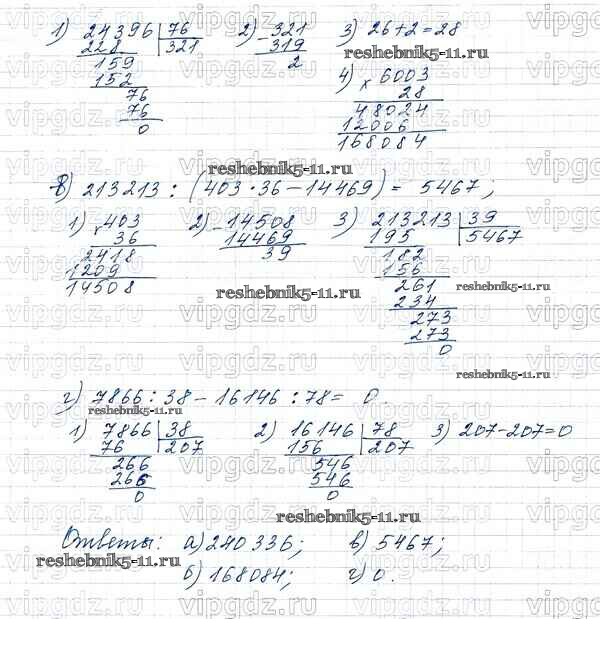 1) 24396 | 76   2) - 321   3) 26+2=28
228 | 321   319   reshebnik5-11.ru
159   2   4) × 6003
152   28
76   48024
76   12006
0   168084
reshebnik5-11.ru
в) 213213 : (403·36-14469) = 5467;
1) × 403   2) - 14508   3) 213213 | 39
36   14469   195 | 5467
2418   39   182
1209   156
14508   261   reshebnik5-11.ru
reshebnik5-11.ru   234
273
273
0
reshebnik5-11.ru
г) 7866 : 38 - 16146 : 78 = 0.
reshebnik5-11.ru
1) 7866 | 38   2) 16146 | 78   3) 207-207=0
76 | 207   156 | 207
266   546
266   546
0   0
reshebnik5-11.ru
Ответы: а) 240336;   в) 5467;
reshebnik5-11.ru
б) 168084;   г) 0.
vipgdz.ru